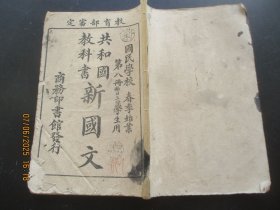 教育部審定
國民學校
春季始業
第八冊
學生用
共和國
教科書
新國文
商務印書館發行
07/06/2025 16:18